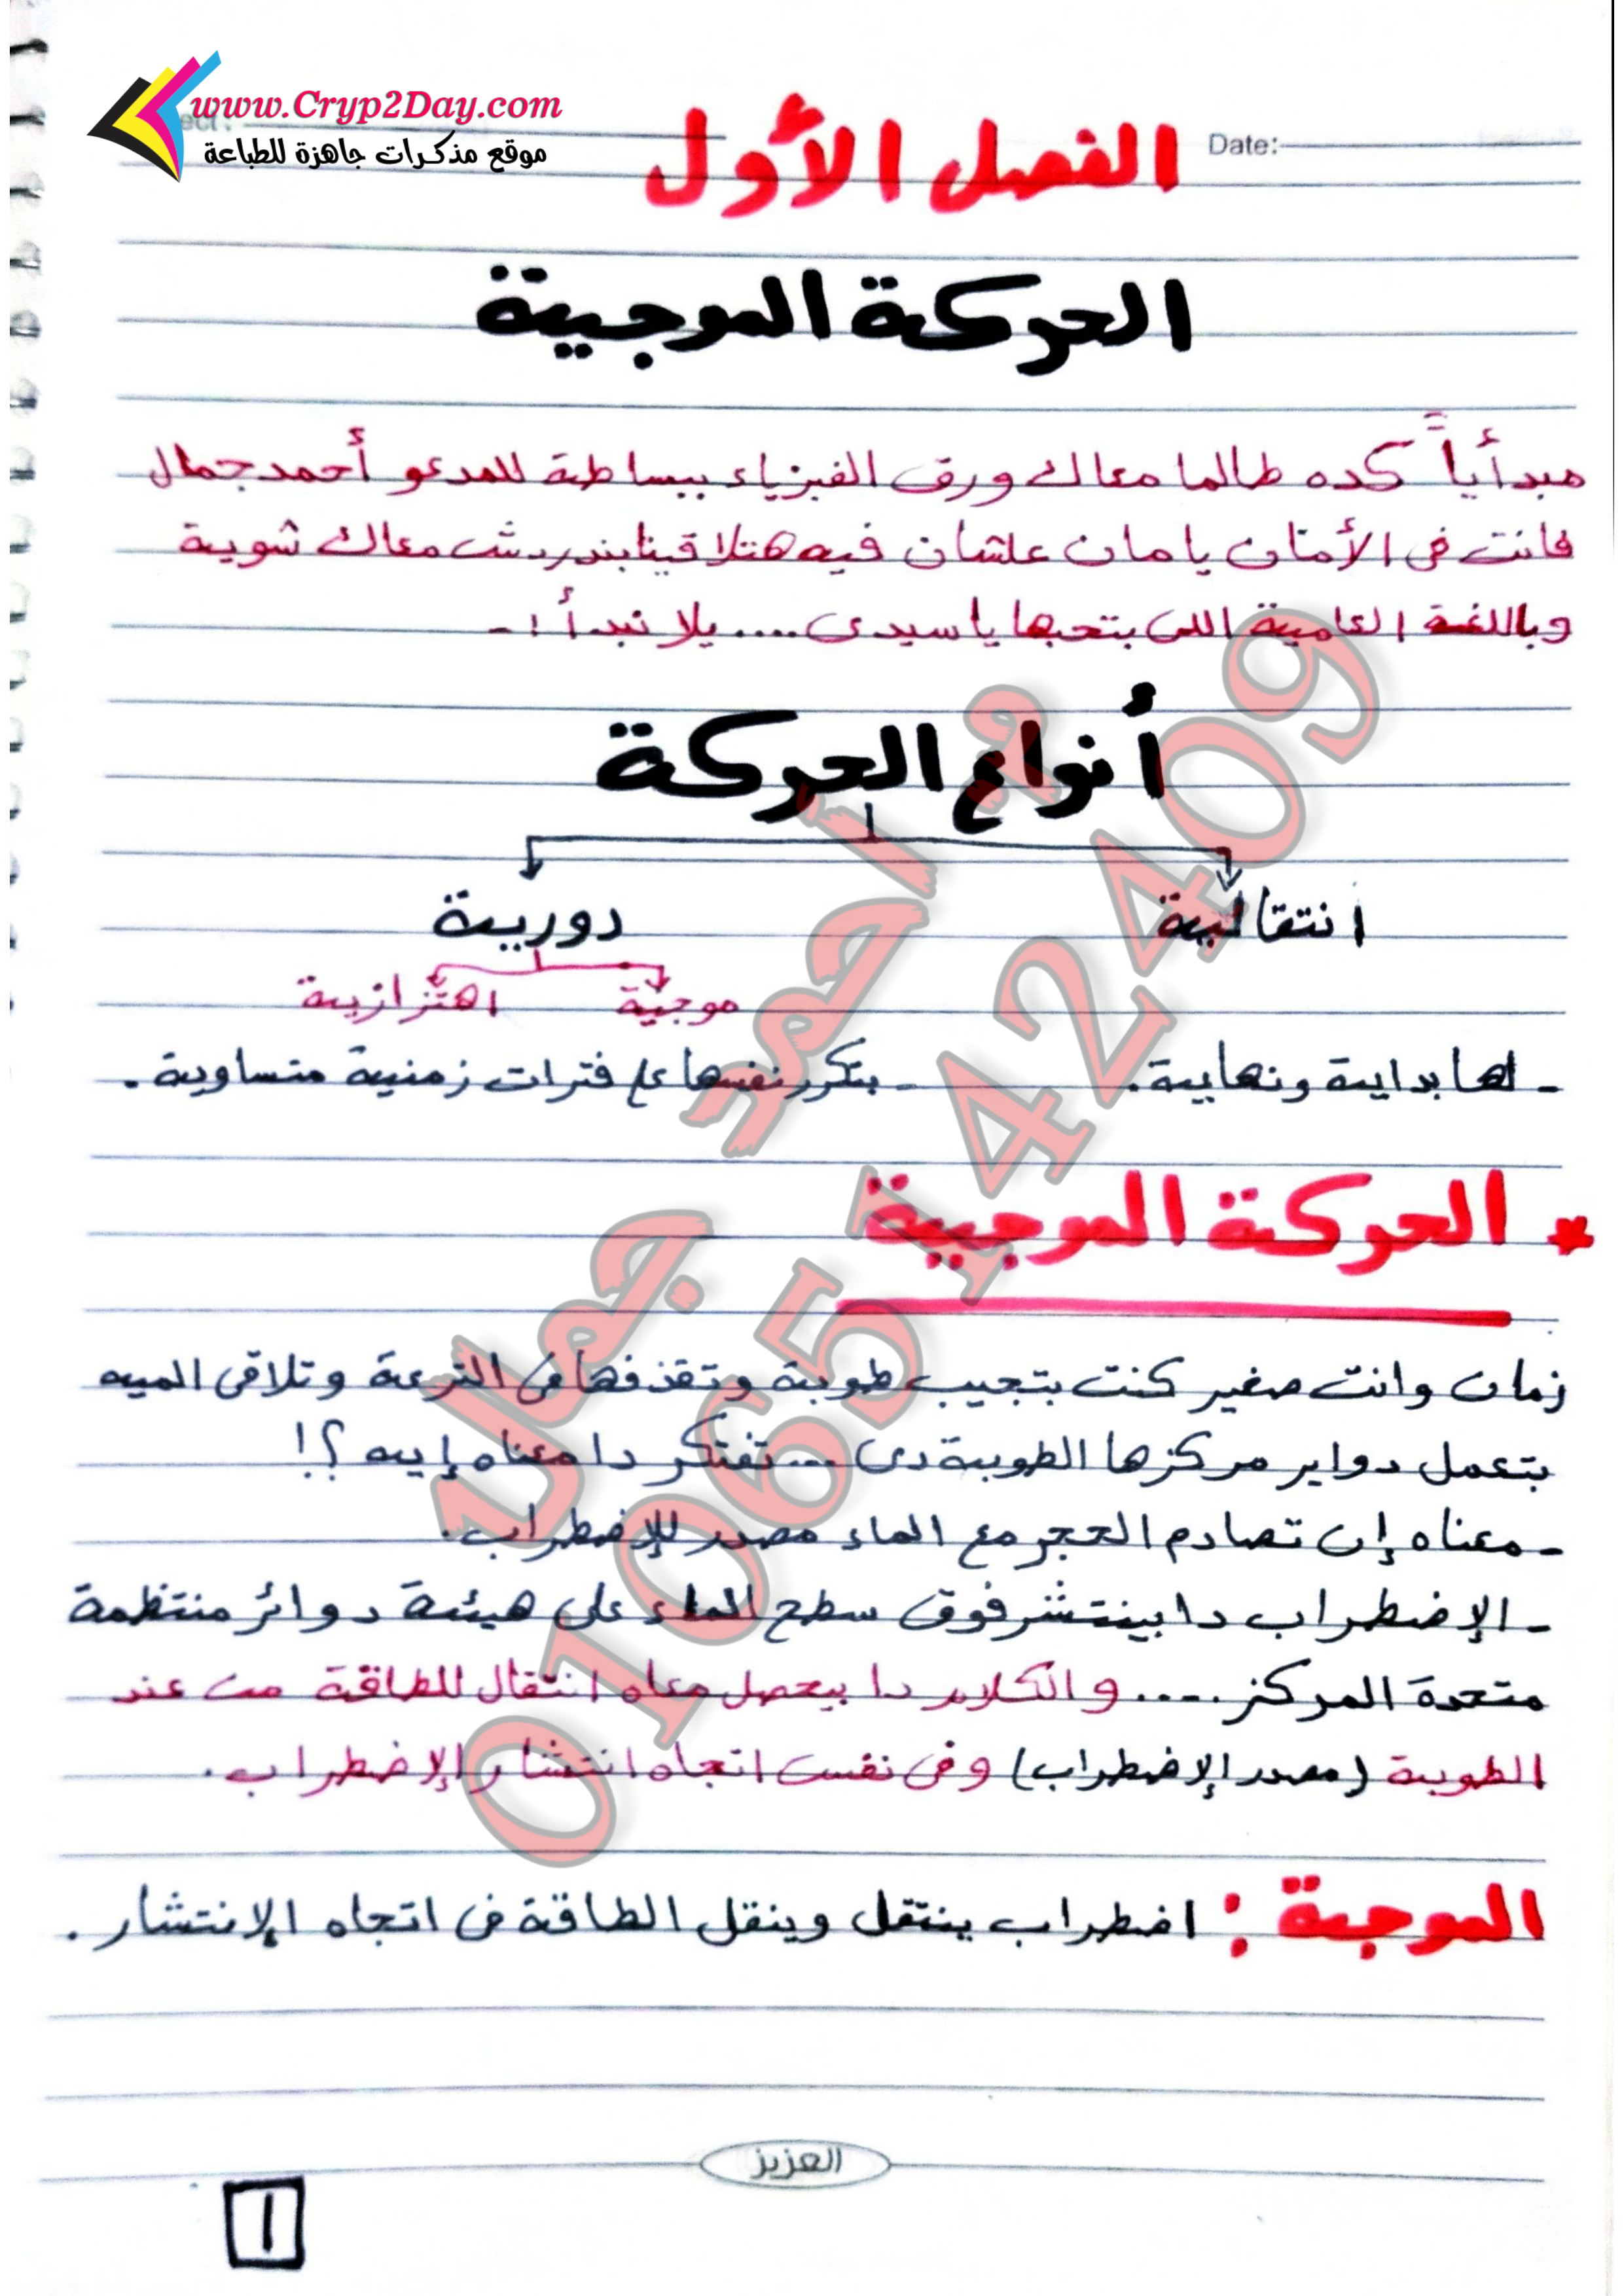 www.Cryp2Day.com
موقع مذكرات جاهزة للطباعة
Date:
الفصل الأول
الحركة الموجية
مبدأياً كده طالما معاك ورق الفيزياء ببساطة للمدعو أحمد جمال
فانت فى الأمان يا مان علشان فيه هتلاقينا بندردش معاك شوية
وباللغة العامية اللى بتحبها يا سيدى .... يلا نبدأ :-
أنواع الحركة
انتقالية
دورية
موجية
اهتزازية
- لها بداية ونهاية.
- بتكرر نفسها على فترات زمنية متساوية.
* الحركة الموجية
زمان وانت صغير كنت بتجيب طوبة وتقذفها فى الترعة وتلاقى الميه
بتعمل دواير مركزها الطوبة دى .... تفتكر دا معناه إيه ؟!
- معناه إن تصادم الحجر مع الماء مصدر للإضطراب.
- الإضطراب دا بينتشر فوق سطح الماء على هيئة دوائر منتظمة
متحدة المركز .... والكلام دا بيحصل معاه انتقال للطاقة من عند
الطوبة (مصدر الإضطراب) وفى نفس اتجاه انتشار الإضطراب.
الموجة : اضطراب ينتقل وينقل الطاقة فى اتجاه الإنتشار.
م أحمد جمال
01065142409
العزيز
١